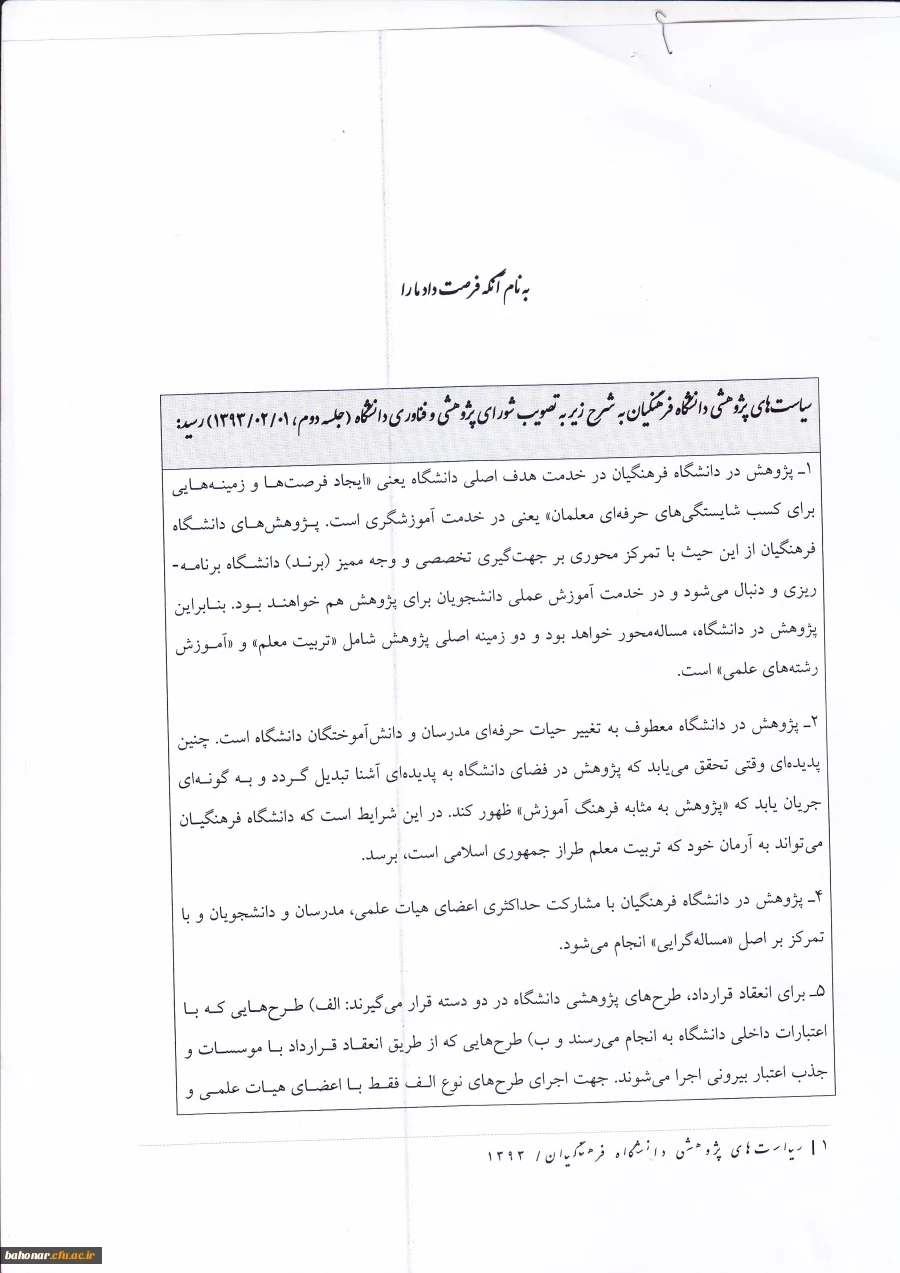 به نام آنکه فرصت داد ما را
سیاست‌های پژوهشی دانشگاه فرهنگیان به شرح زیر به تصویب شورای پژوهشی و فناوری دانشگاه (جلسه دوم، ۱۳۹۳/۰۲/۰۱) رسید:
۱ـ پژوهش در دانشگاه فرهنگیان در خدمت هدف اصلی دانشگاه یعنی «ایجاد فرصت‌ها و زمینه‌هایی
برای کسب شایستگی‌های حرفه‌ای معلمان» یعنی در خدمت آموزشگری است. پژوهش‌های دانشگاه
فرهنگیان از این حیث با تمرکز محوری بر جهت‌گیری تخصصی و وجه ممیز (برند) دانشگاه برنامه-
ریزی و دنبال می‌شود و در خدمت آموزش عملی دانشجویان برای پژوهش هم خواهند بود. بنابراین
پژوهش در دانشگاه، مساله‌محور خواهد بود و دو زمینه اصلی پژوهش شامل «تربیت معلم» و «آموزش
رشته‌های علمی» است.
۲ـ پژوهش در دانشگاه معطوف به تغییر حیات حرفه‌ای مدرسان و دانش‌آموختگان دانشگاه است. چنین
پدیده‌ای وقتی تحقق می‌یابد که پژوهش در فضای دانشگاه به پدیده‌ای آشنا تبدیل گردد و به گونه‌ای
جریان یابد که «پژوهش به مثابه فرهنگ آموزش» ظهور کند. در این شرایط است که دانشگاه فرهنگیان
می‌تواند به آرمان خود که تربیت معلم طراز جمهوری اسلامی است، برسد.
۴ـ پژوهش در دانشگاه فرهنگیان با مشارکت حداکثری اعضای هیات علمی، مدرسان و دانشجویان و با
تمرکز بر اصل «مساله‌گرایی» انجام می‌شود.
۵ـ برای انعقاد قرارداد، طرح‌های پژوهشی دانشگاه در دو دسته قرار می‌گیرند: الف) طرح‌هایی که با
اعتبارات داخلی دانشگاه به انجام می‌رسند و ب) طرح‌هایی که از طریق انعقاد قرارداد با موسسات و
جذب اعتبار بیرونی اجرا می‌شوند. جهت اجرای طرح‌های نوع الف فقط با اعضای هیات علمی و
۱ | سیاست‌های پژوهشی دانشگاه فرهنگیان/ ۱۳۹۳
bahonar.cfu.ac.ir